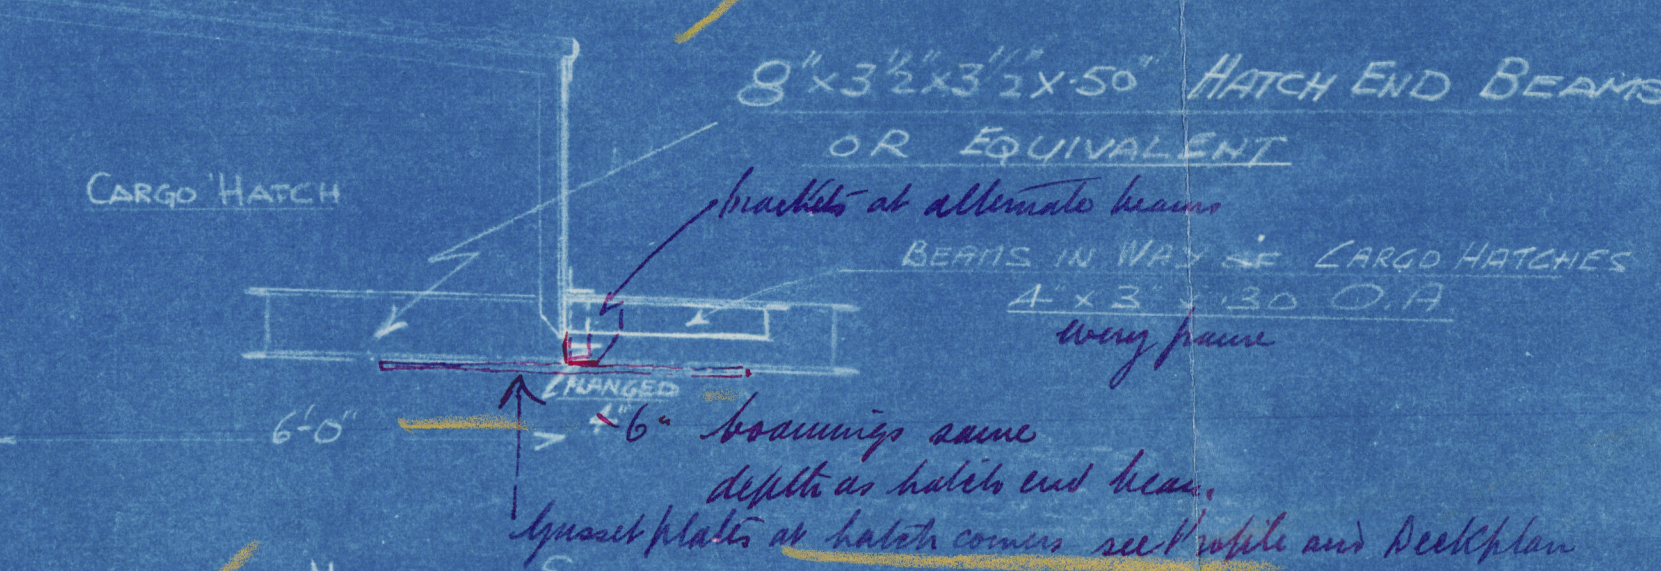 8" x 3 1/2" x 3 1/2" x .50" HATCH END BEAMS
OR EQUIVALENT
CARGO HATCH
brackets at alternate beams
BEAMS IN WAY OF CARGO HATCHES
4" x 3" x .30 O.A
every frame
FLANGED
4"
6'-0"
6" coamings same
depth as hatch end beam.
Gusset plates at hatch corners see Profile and Deckplan